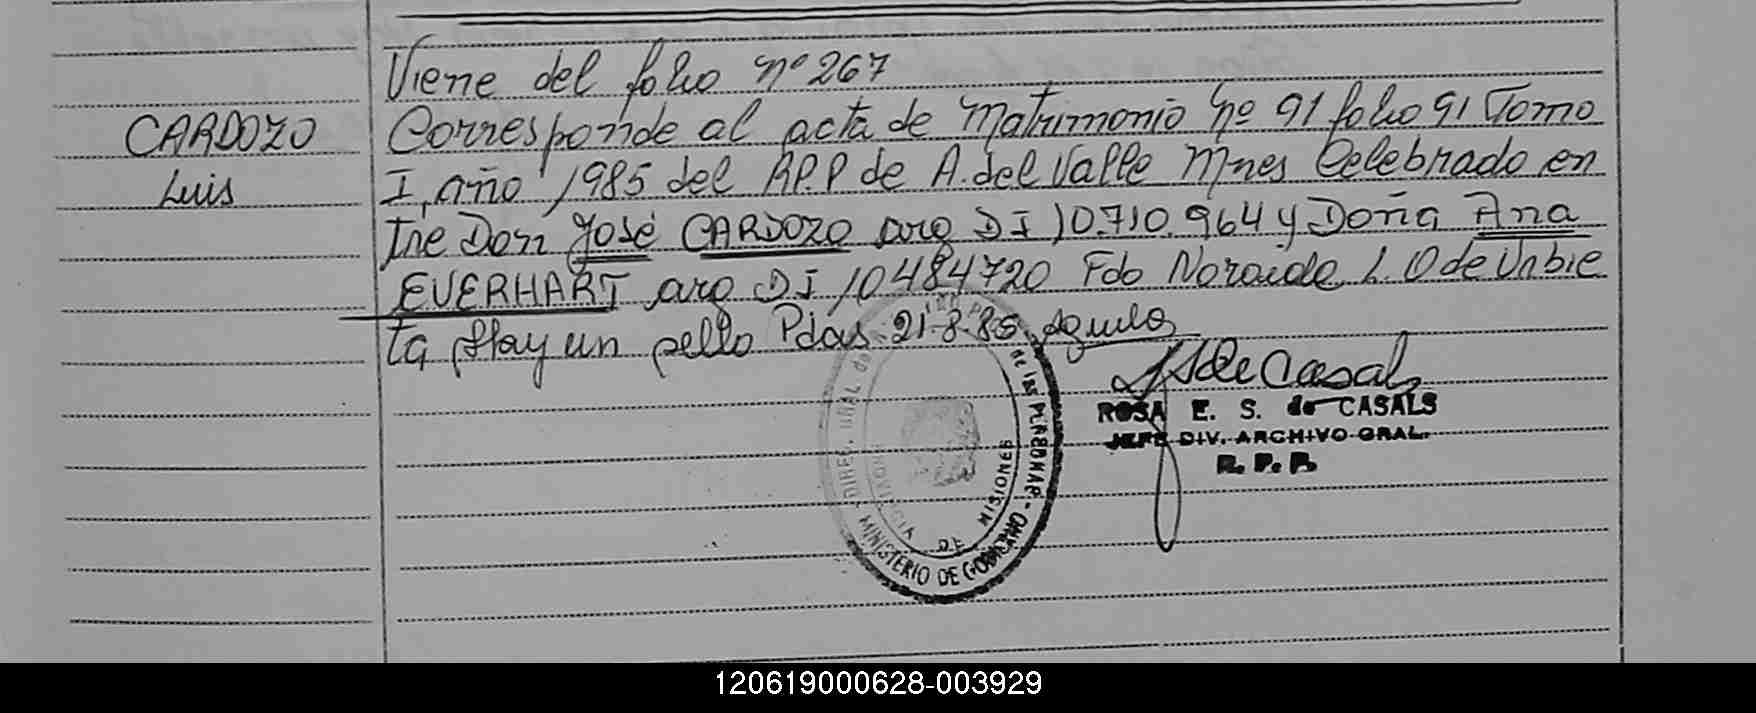 Viene del folio nº 267
CARDOZO
Luis
Corresponde al acta de Matrimonio Nº 91 folio 91 Tomo
I, año 1985 del RP.P de A. del Valle Mnes Celebrado en
tre Don José CARDOZO arg DI 10.710.964 y Doña Ana
EVERHART arg DI 10484720 Fdo Noraida L. O de Urbie
ta Hay un sello Pdas. 21-8-85. Aguilo
ROSA E. S. de CASALS
JEFE DIV. ARCHIVO GRAL.
R. P. P.
de las PERSONAS
MINISTERIO DE GOBIERNO
DE MISIONES
120619000628-003929